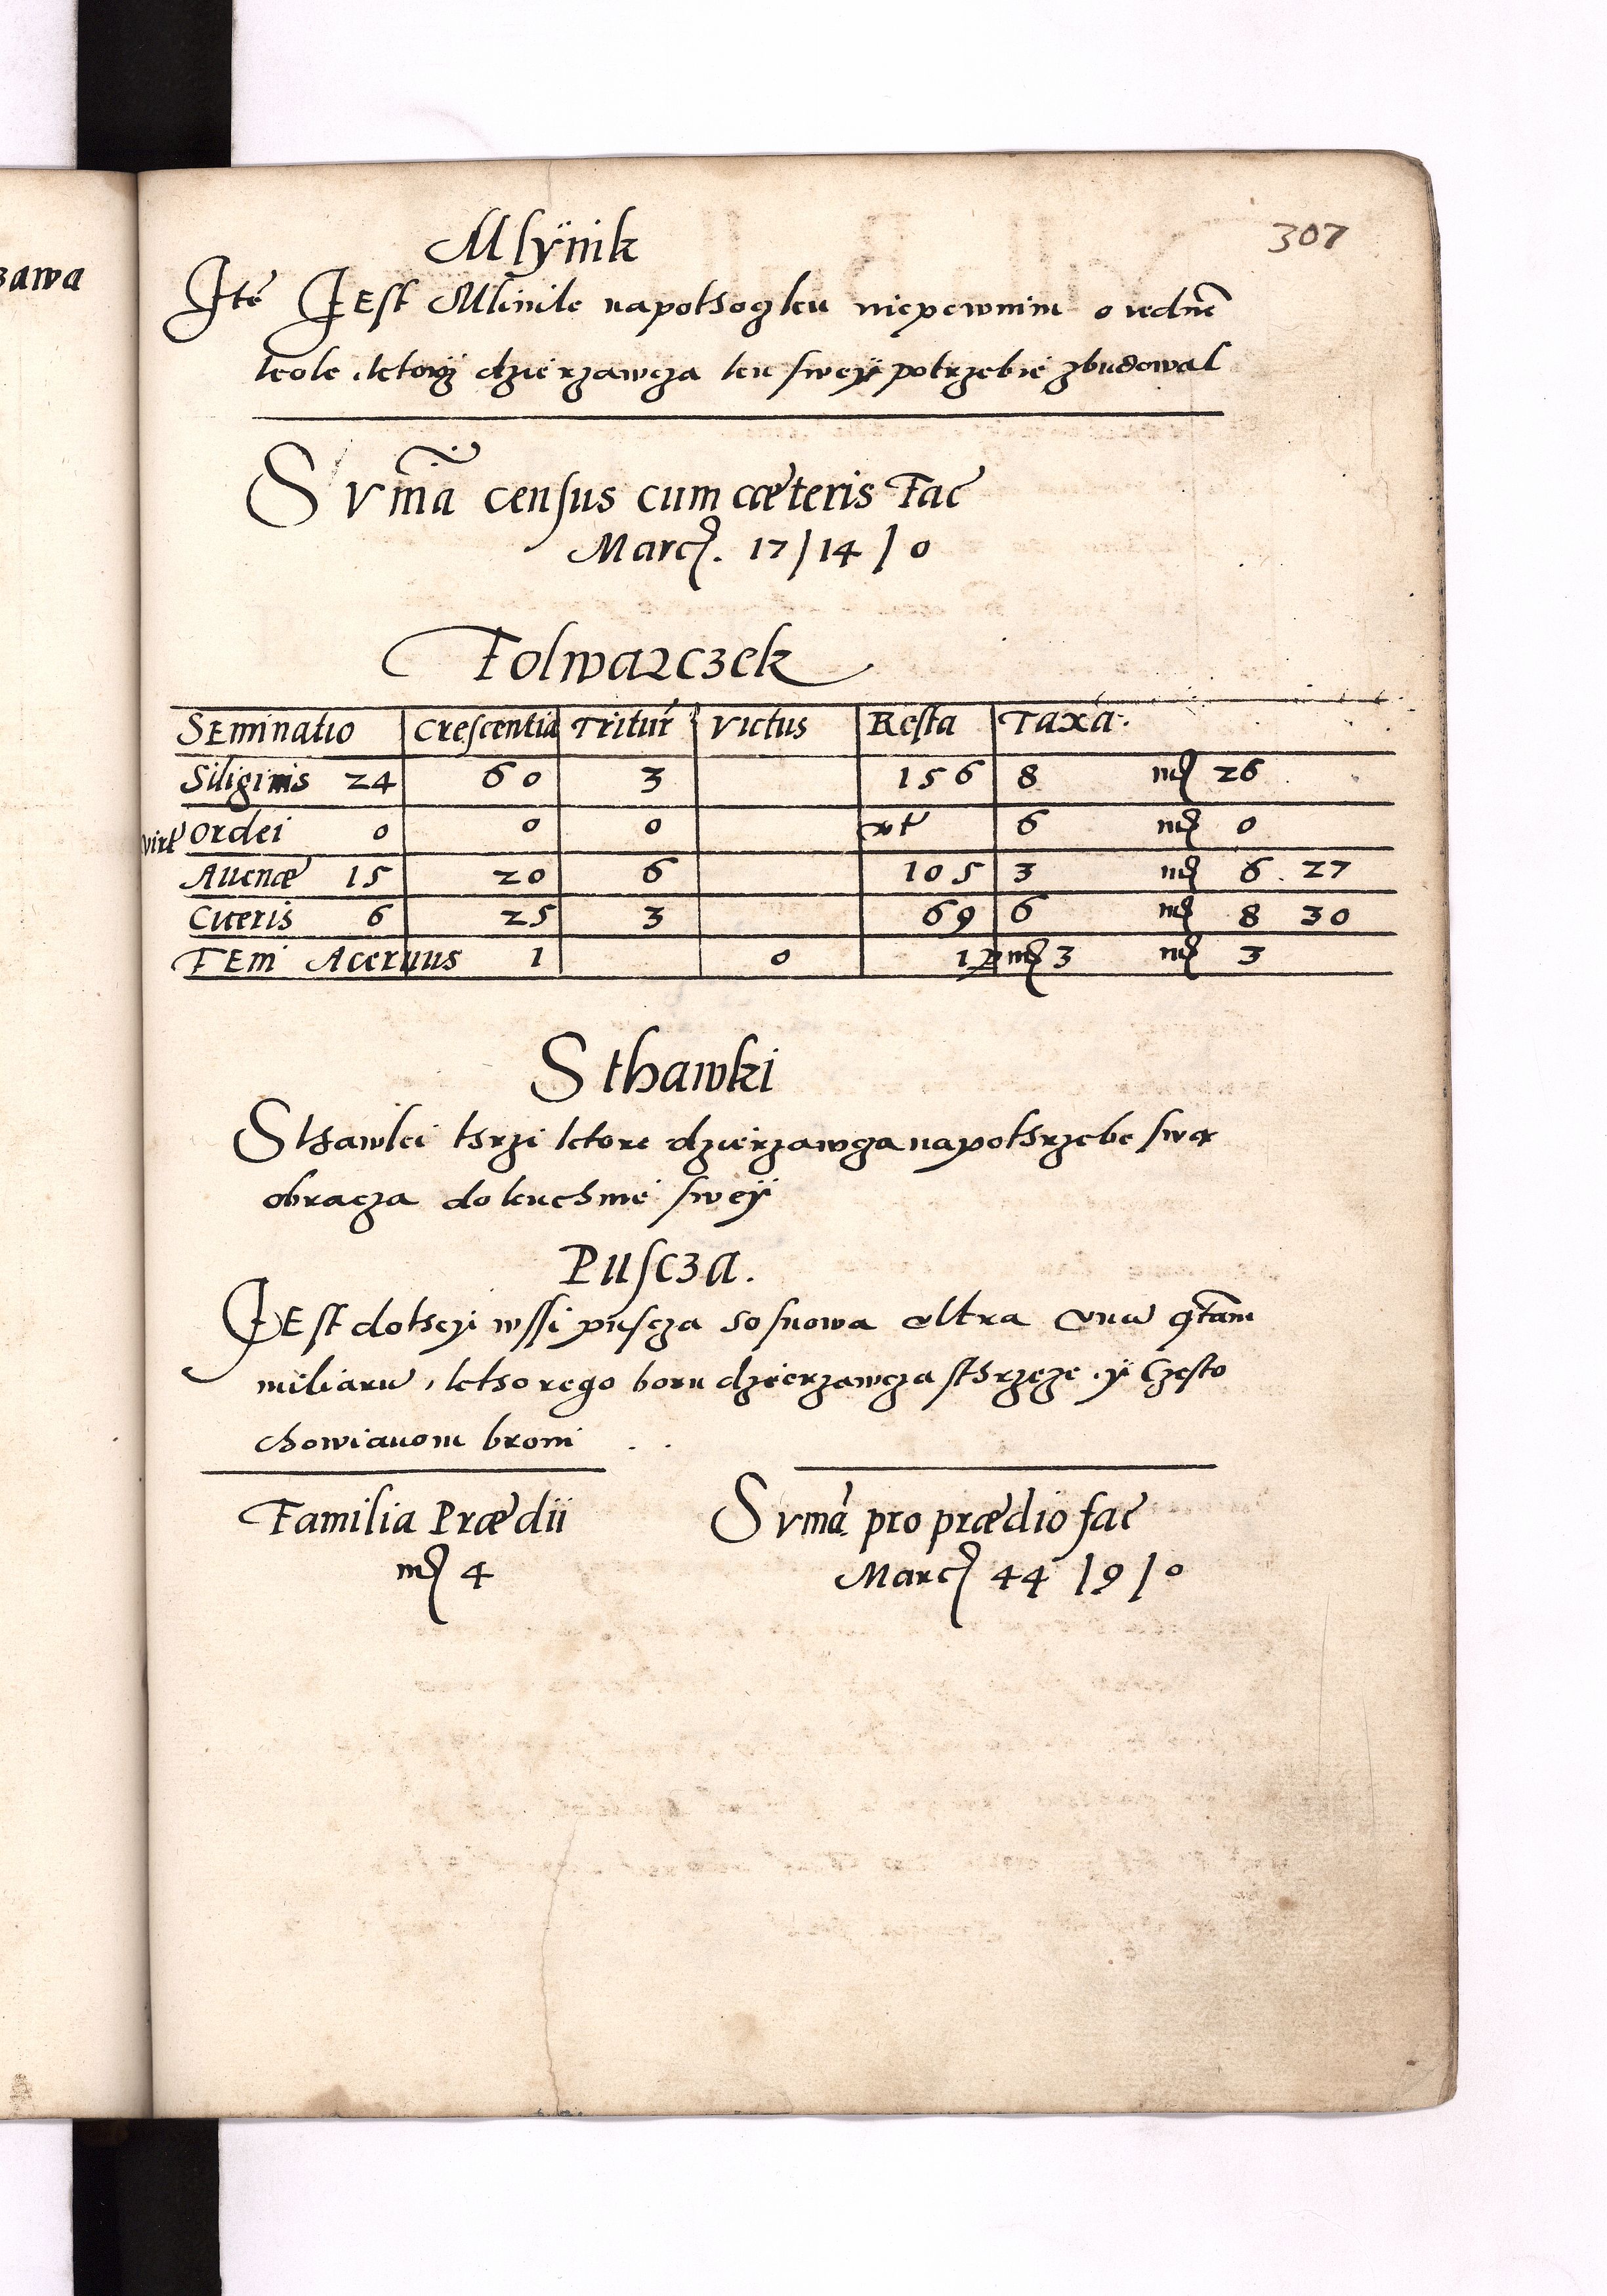 zawa
307
Mlÿnik
Ite͂ JESt Mlinik na pothogku niepewnim o iedne͂
kole, ktory dzierzawcza ku swey potrzebie zbudowal
Sum̃a census cum cæteris fac
Marc. 17 | 14 | 0
Folwarczek
SEminatio Crescentia Tritur Victus Resta Taxa.
Siliginis 24 60 3 156 8 mr 26
Ordei 0 0 0 6 mr 0
Auenæ 15 20 6 105 3 mr 6 . 27
Ciceris 6 25 3 69 6 mr 8 30
FEni Aceruus 1 0 1 p mr 3 mr 3
Sthawki
Sthawki thrzi ktore dzierzawcza na pothrzebe swą
obracza do kuchnie swey
Puscza.
JESt do they wssi puscza sosnowa vltra vnã q̃tam
miliaru, kthorego boru dzierzawcza sthrzeze . ÿ Czesto
chowianom broni
Familia Prædii
mr 4
Sum̃a pro prædio fac
Marc 44 | 9 | 0